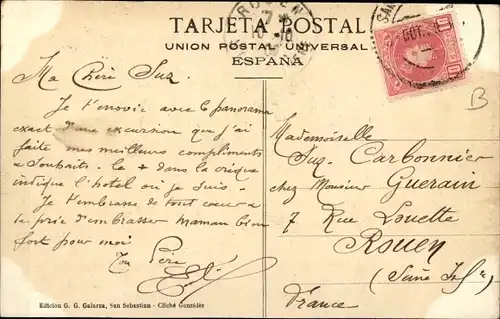 TARJETA POSTAL
UNION POSTAL UNIVERSAL
ESPAÑA
Ma Chère Suz
Je t'envoie avec le panorama
exact d'une excursion que j'ai
faite mes meilleurs compliments
& souhaits. La + dans la
indique l'hotel où je suis.
Je t'embrasse de tout coeur &
te prie d'embrasser maman bien
fort pour moi
Ton Père
Mademoiselle
Suz. Carbonnier
chez Monsieur Guerain
7 Rue Louette
Rouen
(Seine Infre)
France
10
B
Edición G. G. Galarza, San Sebastian - Cliché González